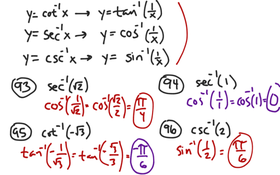 y = cot⁻¹ x → y = tan⁻¹ (1/x)
y = sec⁻¹ x → y = cos⁻¹ (1/x)
y = csc⁻¹ x → y = sin⁻¹ (1/x)
93 sec⁻¹ (√2)
cos⁻¹ (1/√2) = cos⁻¹ (√2/2) = π/4
94 sec⁻¹ (1)
cos⁻¹ (1/1) = cos⁻¹ (1) = 0
95 cot⁻¹ (-√3)
tan⁻¹ (-1/√3) = tan⁻¹ (-√3/3) = -π/6
96 csc⁻¹ (2)
sin⁻¹ (1/2) = π/6